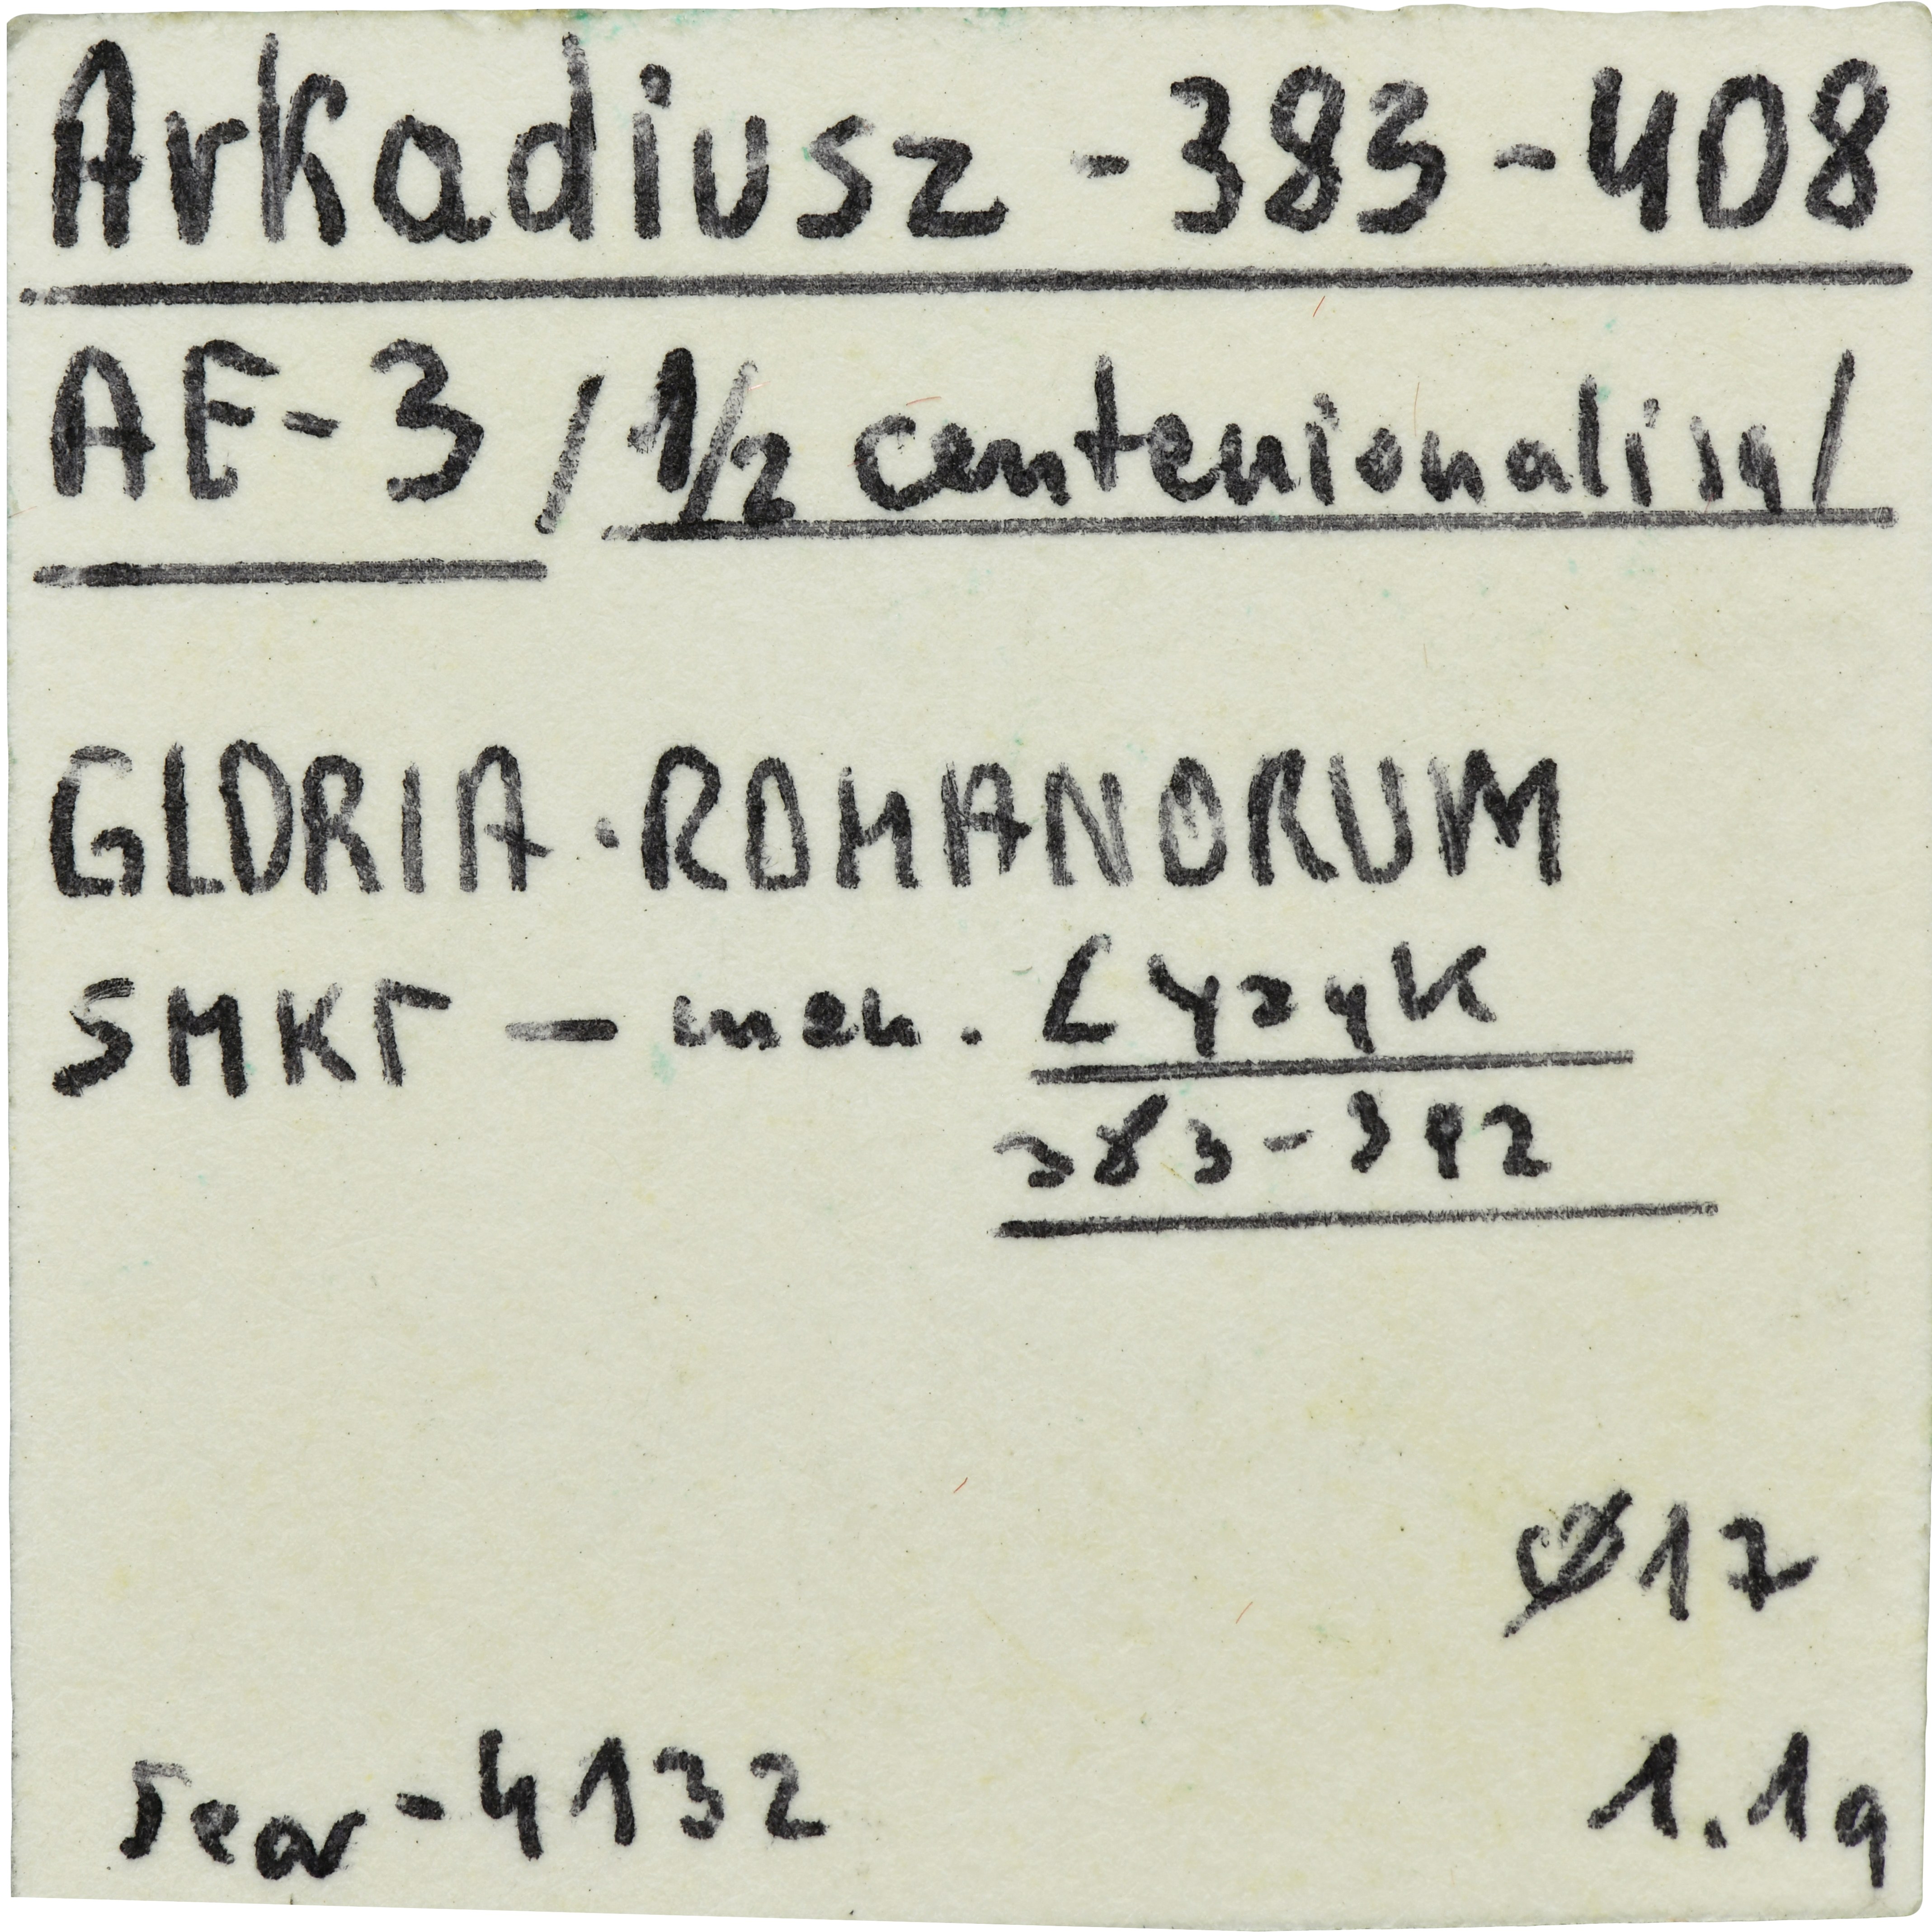 Arkadiusz - 383 - 408
AE - 3 / 1/2 centenionalisy/
GLORIA · ROMANORUM
SMKΓ — men. Cyzyk
383 - 392
Ø 17
Sear - 4132
1.1g